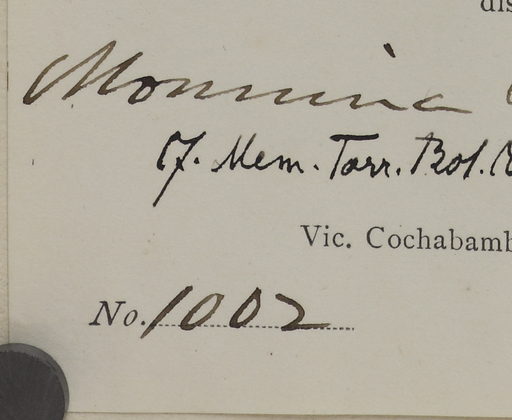 dis
Monnina
Cf. Mem. Torr. Bot.
Vic. Cochabamb
No. 1002